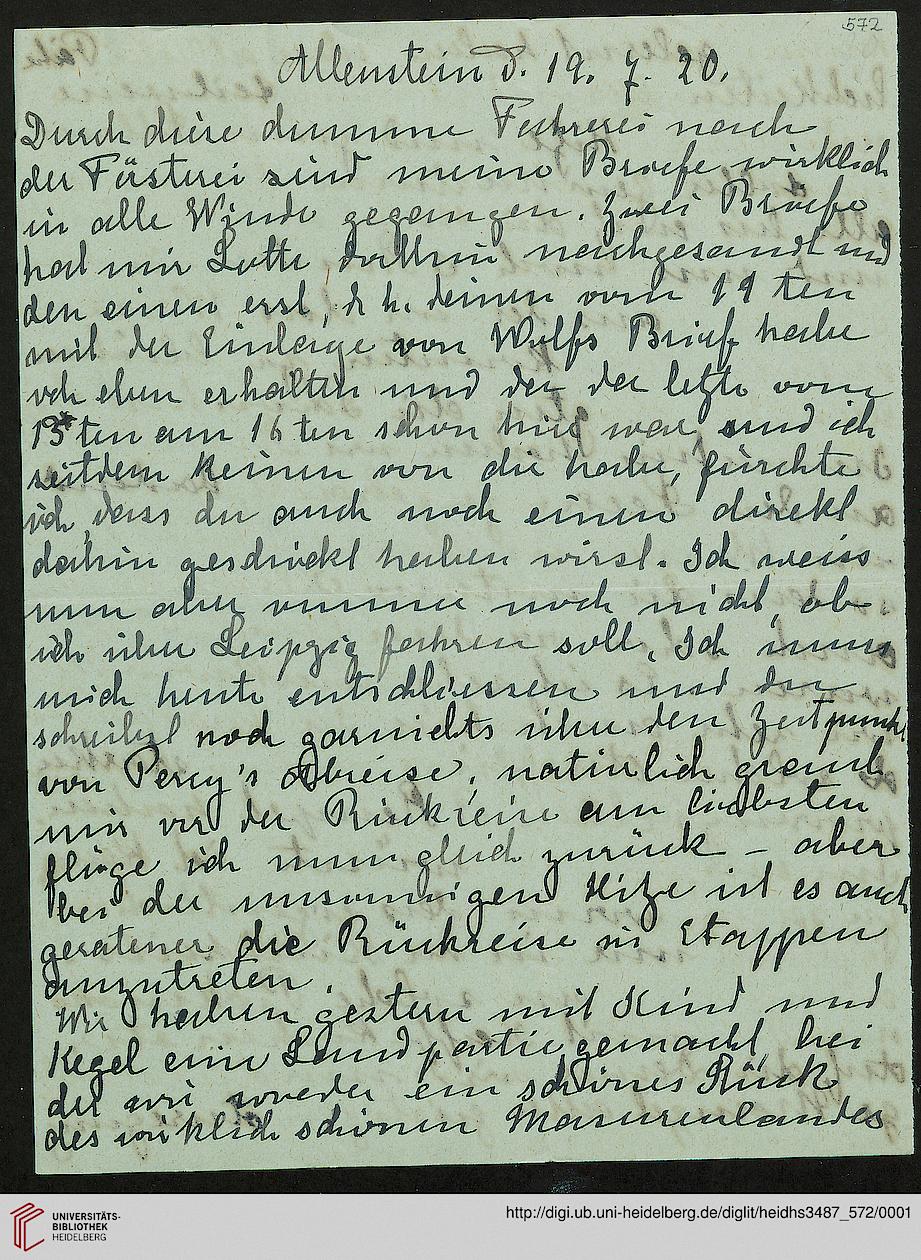 572
Allenstein d. 19. 7. 20.
Durch diese dumme Fahrerei nach
der Försterei sind meine Briefe wirklich
in alle Winde gegangen. Zwei Briefe
hat mir Lotte dorthin nachgesandt und
den einen erst, d. h. deinen vom 11 ten
mit der Einlage von Wulfs Brief habe
ich eben erhalten und da der letzte vom
13 ten am 16 ten schon hier war und ich
seitdem keinen von dir habe, fürchte
ich, dass du auch noch einen direkt
dahin geschickt haben wirst. Ich weiss
nun aber immer noch nicht, ob
ich über Leipzig fahren soll. Ich muss
mich heute entschliessen und du
schreibst noch garnichts über den Zeitpunkt
von Percy's Abreise, natürlich graut
mir vor der Rückreise am liebsten
flöge ich nun gleich zurück – aber
bei der unsinnigen Hitze ist es auch
geratener die Rückreise in Etappen
anzutreten.
Wir haben gestern mit Kind und
Kegel eine Landpartie gemacht bei
der wir wieder ein schönes Stück
des wirklich schönen Masurenlandes
UNIVERSITÄTS-
BIBLIOTHEK
HEIDELBERG
http://digi.ub.uni-heidelberg.de/diglit/heidhs3487_572/0001